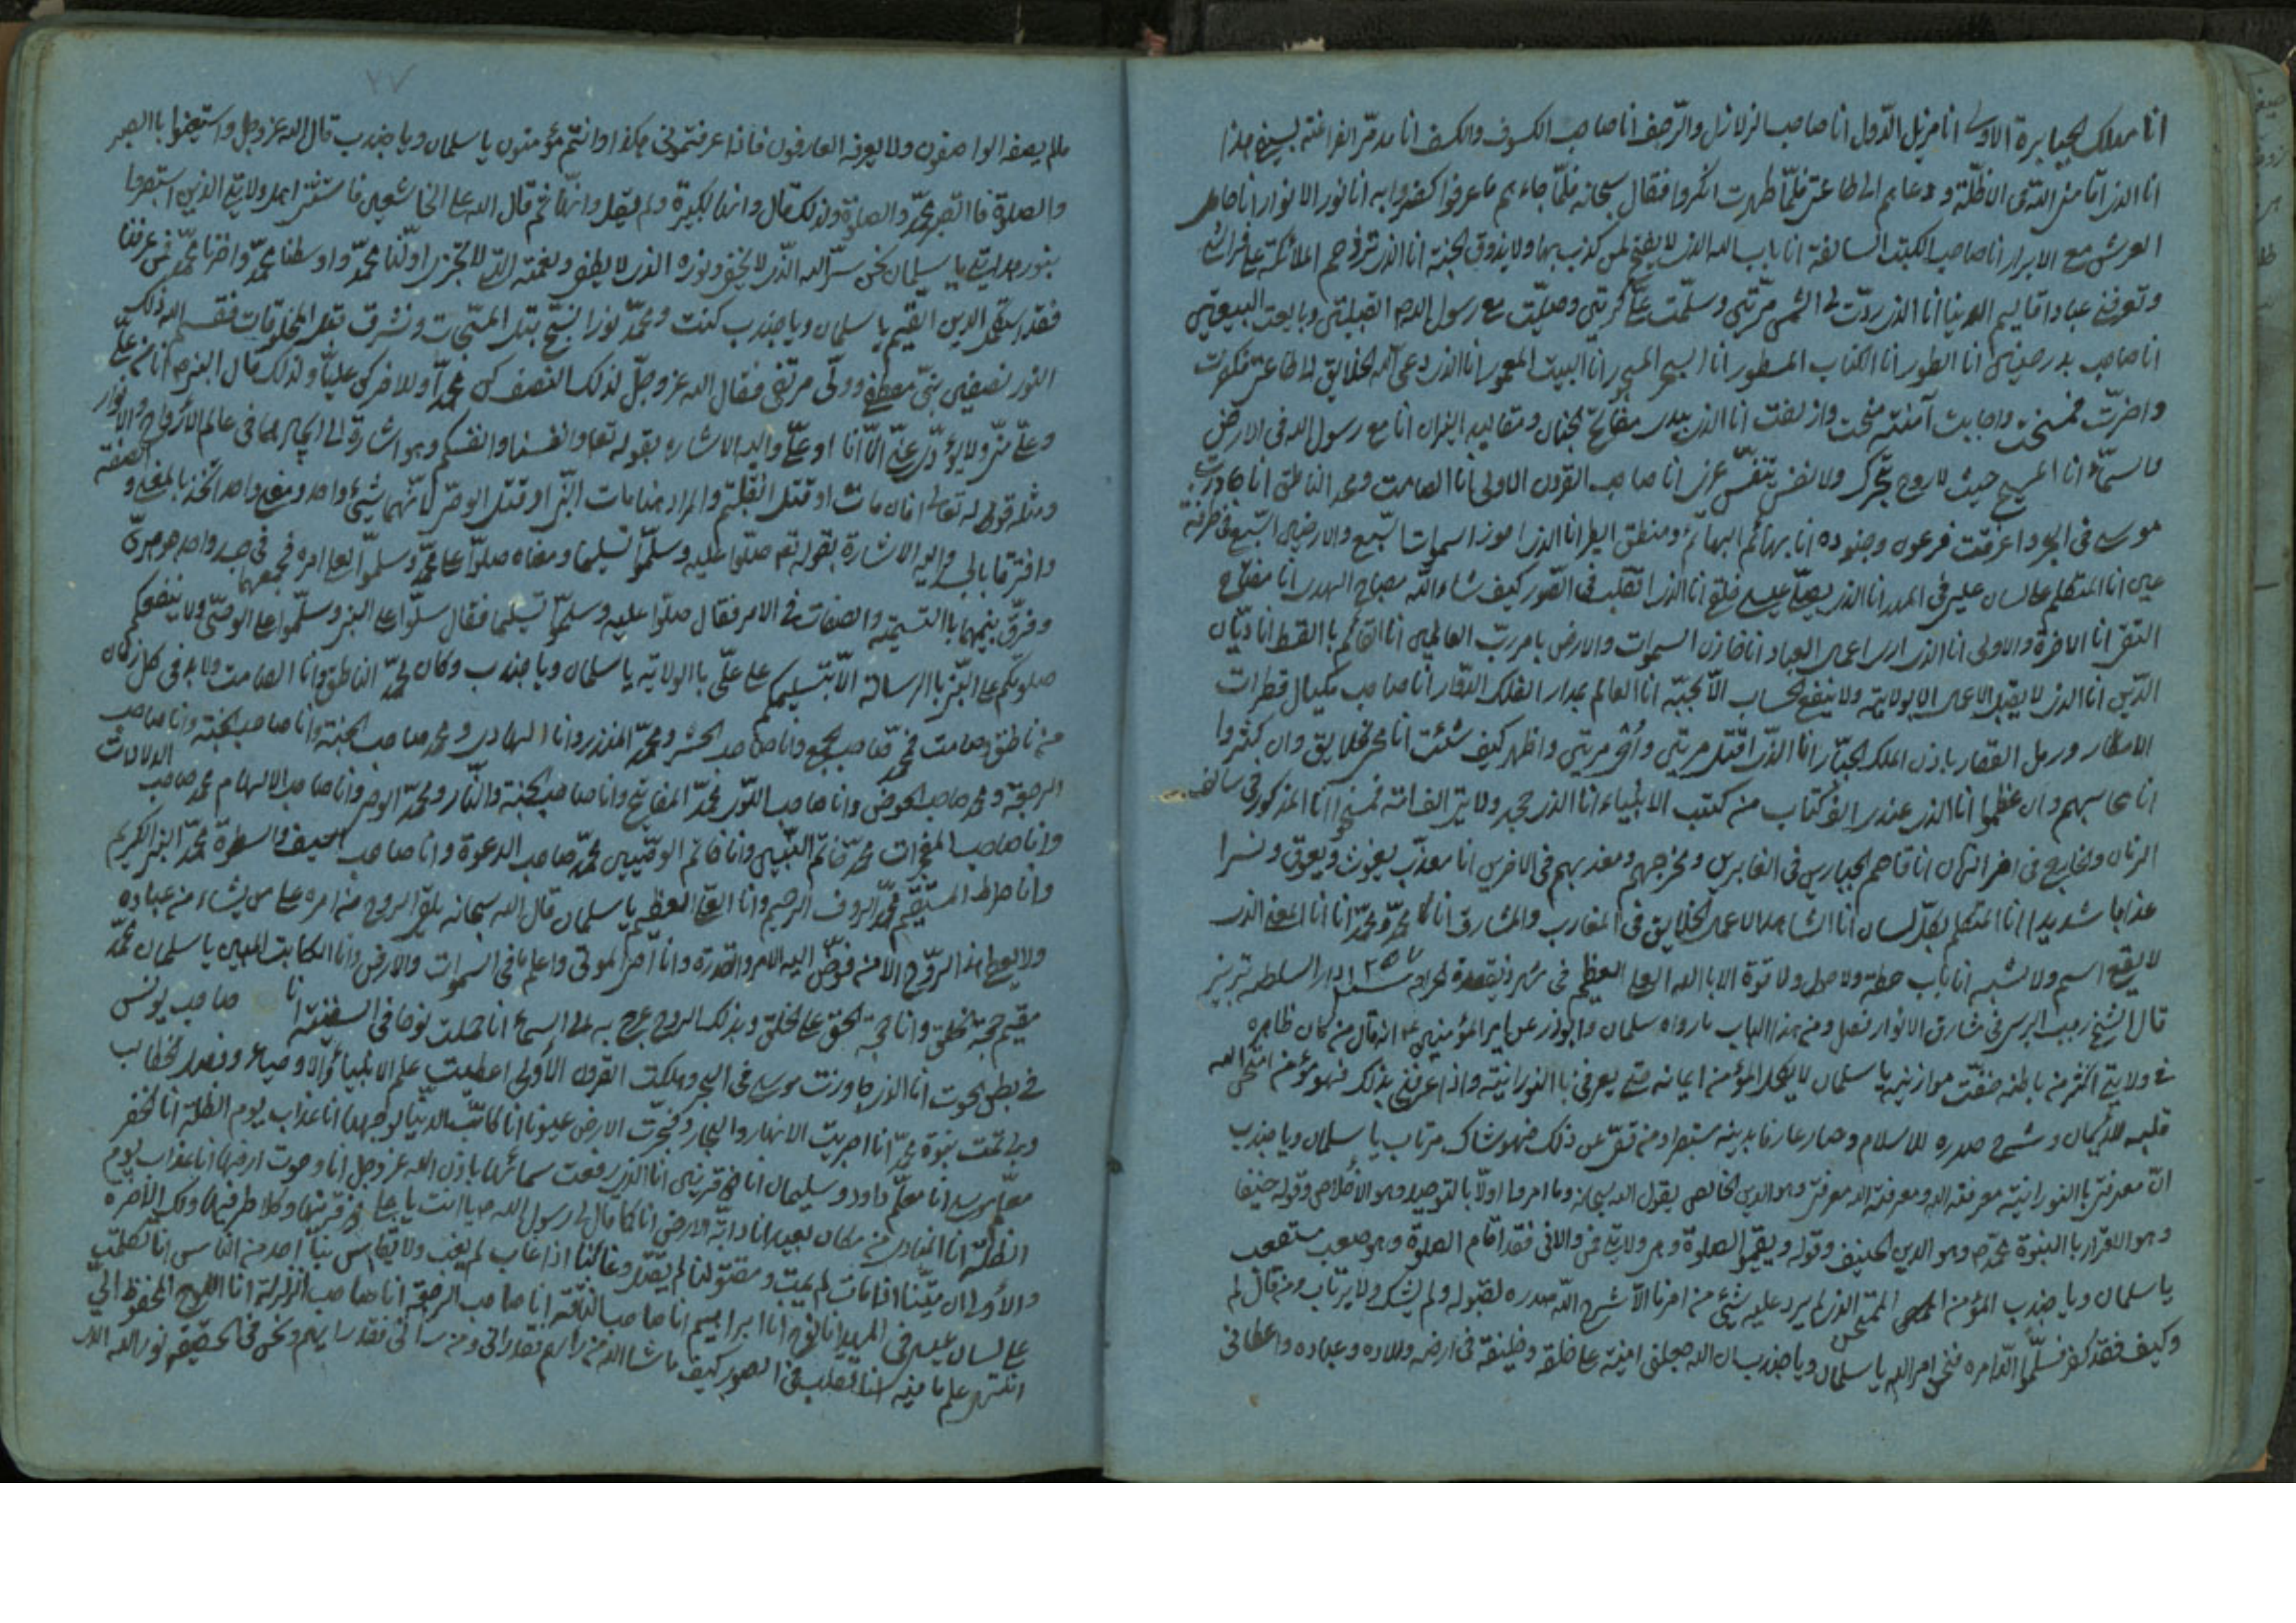 انا مهلك الجبابرة الاولى انا مزيل الدّول انا صاحب الزلازل والرّجف انا صاحب الكسوف والخسف انا مدمّر الفراعنة بسيفى هذا
انا الذى اقامنى اللّه فى الاظلّة و دعاهم الى طاعتى فلمّا ظهرت انكروا فقال سبحانه فلمّا جاءهم ما عرفوا كفروا به انا نور الانوار انا حامل
العرش مع الابرار انا صاحب الكتب السالفة انا باب الله الذى لا يفتح لمن كذب بها ولا يذوق الجنة انا الذى تزدحم الملائكة على فراشى
وتعرفنى عباد اقاليم الدنيا انا الذى ردّت لى الشمس مرّتين وسلّمت علىّ كرّتين وصلّيت مع رسول الله القبلتين وبايعت البيعتين
انا صاحب بدر و حنين انا الطور انا الكتاب المسطور انا البحر المسجور انا البيت المعمور انا الذى دعى الله الخلايق الى طاعتى فكفرت
واصرّت فمسخت واجابت امّة فنجت وازلفت انا الذى بيدى مفاتيح الجنان ومقاليد النيران انا مع رسول الله فى الارض
و السمآء انا المسيح حيث لا روح يتحرك ولا نفس يتنفّس غيرى انا صاحب القرون الاولى انا الصامت ومحمد الناطق انا جاوزت
موسى فى البحر و اغرقت فرعون وجنوده انا اعلم هماهم البهائم ومنطق الطير انا الذى اجوز السموات السبع والارضين السبع فى طرفة
عين انا المتكلم على لسان عيسى فى المهد انا الذى يصلّى عيسى خلفى انا الذى اتقلب فى الصّور كيف شاء اللّه مصباح الهدى انا مفتاح
التقى انا الاخرة والاولى انا الذى ارى اعمال العباد انا خازن السموات والارض بامر ربّ العالمين انا القآئم با القسط انا ديّان
الدّين انا الذى لا يقبل الاعمال الا بولايته ولا ينفع الحساب الّا بحبّه انا العالم بمدار الفلك الدوّار انا صاحب مكيال قطرات
الامطار ورمل القفار باذن الملك الجبّار انا الذى اقتل مرتين و اُحى مرتين واظهر كيف شئت انا محى الخلايق وان كثروا
انا محاسبهم وان عظموا انا الذى عندى الف كتاب من كتب الانبياء انا الذى جحد ولايتى الف امّة فمسخوا انا المذكور فى سالف
الزمان والخارج فى اخر الزمان انا قاصم الجبارين فى الغابرين ومخرجهم ومعذبهم فى الاخرين انا معذّب يغوث ويعوق و نسرا
عذابا شديدا انا المتكلم بكلّ لسان انا الشاهد لاعمال الخلايق فى المغارب والمشارق انا محمّد ومحمّد انا انا المعنى الذى
لا يقع اسم ولا شبه انا باب حطة ولا حول ولا قوة الا با الله العلى العظيم فى شهر ذيقعدة الحرام سنه ١٢٥٧ دار السلطنه تبريز
قال الشيخ رجب البرسى فى مشارق الانوار فصل ومن هذا الباب ما رواه سلمان وابوذر عن امير المؤمنين ع انه قال من كان ظاهره
فى ولايتى اكثر من باطنه خفّت موازينه يا سلمان لا يكمل المؤمن ايمانه حتى يعرفنى با النورانيّة واذا عرفنى بذلك فهو مؤمن امتحن الله
قلبه للايمان و شرح صدره للاسلام وصار عارفا بدينه مستبصرا ومن قصّر عن ذلك فهو شاك مرتاب يا سلمان ويا جندب
انّ معرفتى با النورانيّة معرفة الله ومعرفة الله معرفتى وهو الدين الخالص يقول الله سبحانه وما امروا اولّا با التوحيد وهو الاخلاص وقوله حنيفا
وهو الاقرار با النبوة محمّد ص وهو الدين الحنيف وقوله ويقيموا الصلوة وهى ولايتى فمن والانى فقد اقام الصلوة وهو صعب مستصعب
يا سلمان ويا جندب المؤمن الممتحن الذى لم يرد عليه شئى من امرنا الّا شرح اللّه صدره لقبوله ولم يشك ولا يرتاب ومن قال لم
وكيف فقد كفر فسلّموا للّه امره فنحن امر الله يا سلمان ويا جندب ان الله جعلنى امينه على خلقه وخليفته فى ارضه وبلاده وعباده واعطانى
٢٧
ما لم يصفه الواصفون ولا يعرفه العارفون فاذا عرفتمونى هكذا فانتم مؤمنون يا سلمان ويا جندب قال الله عز وجل واستعينوا باالصبر
والصلوة فا الصّبر محمّد والصلوة ولذلك قال وانها لكبيرة ولم يقل وانّهما ثم قال الا على الخاشعين فاستثنى اهل ولايتى الذين استبصروا
بنور هدايتى يا سلمان نحن سرّ الله الذى لا يخفى ونوره الذى لا يطفى ونعمته التى لا تجزى اولّنا محمّد واوسطنا محمّد واخرنا محمّد فمن عرفنا
فقد استكمل الدين القيّم يا سلمان ويا جندب كنت ومحمّد نورا نسبّح قبل المسبّحات ونشرق قبل المخلوقات فقسم الله ذلك
النور نصفين نبىّ مصطفى ووصىّ مرتضى فقال الله عز وجلّ لذلك النصف كن محمداً وللاخر كن عليّاً ولذلك قال النبى ص انا من علىّ
وعلىّ منّى ولا يؤدّى عنّى الّا انا او علىّ واليه الاشاره بقوله تعا وانفسنا وانفسكم وهو اشارة الى اتحادهما فى عالم الارواح والانوار
ومثله قوله تعالى افان مات او قتل انقلبتم والمراد هنا مات النبىّ او قتل الوصىّ لانّهما شيئى واحد ومعنى واحد اتحدا با المعنى و الصفة
وافترقا با الجسد واليه الاشارة بقوله تع صلّوا عليه وسلّموا تسليما ومعناه صلّوا على محمّد وسلّموا لعلى امره فجمعهما فى جسد واحد جوهرىّ
وفرّق بينهما با التسمية والصفات فى الامر فقال صلّوا عليه وسلّموا تسليما فقال صلّوا على النبى وسلّموا على الوصىّ ولا ينفعكم
صلوتكم على النبىّ با الرسالة الّا بتسليمكم على علىّ با الولاية يا سلمان ويا جندب وكان محمّد الناطق وانا الصامت ولا بد فى كل زمان
من ناطق وصامت فمحمّد صاحب الجمع وانا صاحب الحشر ومحمّد المنذر وانا الهادى ومحمد صاحب الجنة وانا صاحب الرجعة
الرجعة و محمد صاحب الحوض وانا صاحب اللّوآء محمّد المفاتيح وانا صاحب الجنة والنّار ومحمّد الوحى وانا صاحب الالهام محمد صاحب الدلالات
وانا صاحب المعجزات محمّد خاتم النبّيين وانا خاتم الوصّيين محمّد صاحب الدعوة وانا صاحب السيف والسطوة محمّد النبىّ الكريم
وانا صراط المستقيم محمّد الرؤف الرحيم وانا العلى العظيم يا سلمان قال الله سبحانه يلقى الروح من امره على من يشاء من عباده
ولا يعطى هذا الرّوح الا من فوضّ اليه الامر والقدرة وانا احى الموتى واعلم ما فى السموات والارض وانا الكتاب المبين يا سلمان محمّد
مقيم حجة خلقى وانا حجة الحق على الخلق وبذلك الروح عرج به الى السمآء انا حملت نوحا فى السفينة انا صاحب يونس
فى بطن الحوت انا الذى جاوزت موسى فى البحر و اهلكت القرون الاولى اعطيت علم الانبياء والاوصياء وفصل الخطاب
وبى تمت نبوة محمّد انا اجريت الانهار والبحار وفجّرت الارض عيونا انا كابّ الدنيا لوجهها انا عذاب يوم الظلة انا الخضر
معلّم موسى انا معلّم داود و سليمان انا ذو القرنين انا الذى رفعت سمائها باذن الله عز وجل انا دحوت ارضها انا عذاب يوم
الظلّة انا المنادى من مكان بعيد انا دابّة الارض انا كما قال لى رسول الله ص يا على انت يا على ذو قرنيها وكلا طرفيها ولك الاخره
والاولى ان ميّتنا اذا مات لم يمت ومقتولنا لم يقتل وغائبنا اذا غاب لم يغب ولا يقاس بنا احد من الناس انا تكلمّت
على لسان عيسى فى المهد انا نوح انا ابراهيم انا صاحب الناقة انا صاحب الرجفة انا صاحب الزلزلة انا اللوح المحفوظ الىّ
انتهى علم ما فيه انا اتقلب فى الصور كيف ما شاء الله من رآهم فقد رانى ومن رآنى فقد رآهم ونحن فى الحقيقة نور الله الذى